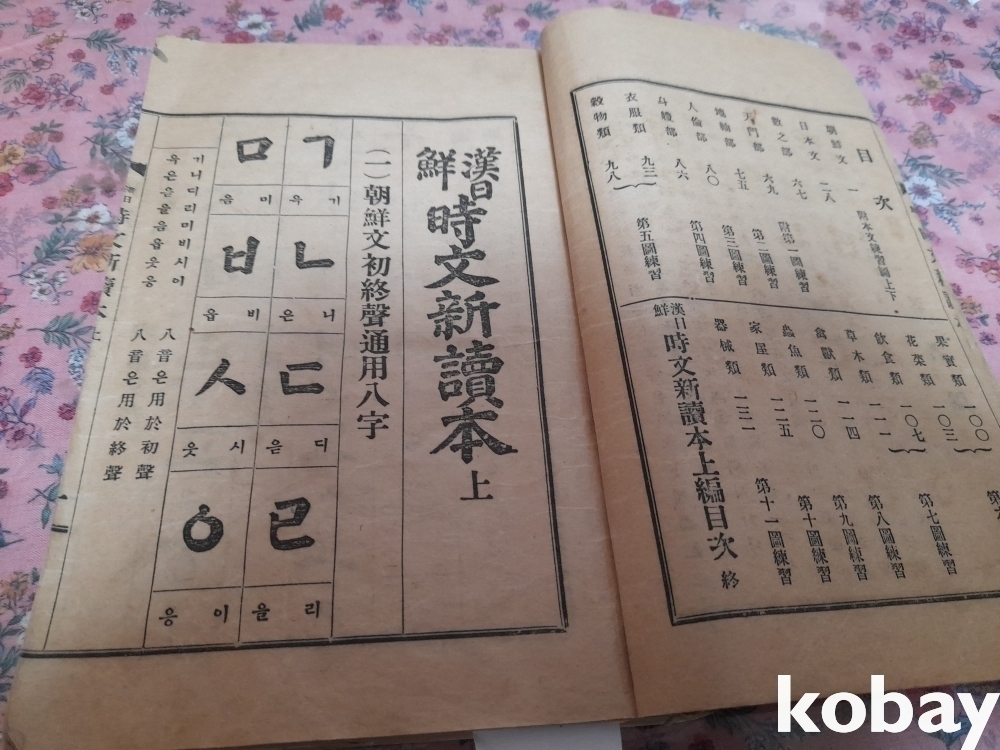 目次
朝鮮文 一 附本文練習圖上下
日本文 二八
數之部 六七 附第一圖練習
天門部 六九 第二圖練習
七五 第三圖練習
人倫部 八〇 第四圖練習
八六
衣服類 九三
穀物類 九八 第五圖練習
果實類 一〇〇
花菜類 一〇三
飲食類 一〇七 第七圖練習
草木類 一一一 第八圖練習
禽獸類 一一四 第九圖練習
蟲魚類 一二〇 第十圖練習
家屋類 一二五 第十一圖練習
器械類
漢日鮮時文新讀本上編目次 終
漢日鮮時文新讀本 上
(一)朝鮮文初終聲通用八字
ㄱ 기윽
ㄴ 니은
ㄷ 디읃
ㄹ 리을
ㅁ 미음
ㅂ 비읍
ㅅ 시읏
ㆁ 이응
기니디리미비시이 八音은用於初聲
윽은읃을음읍읏응 八音은用於終聲
kobay